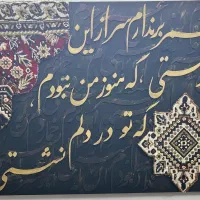 سر برندارم سر از این
ستی، که هنوز من نبودم،
که تو در دلم نشستی